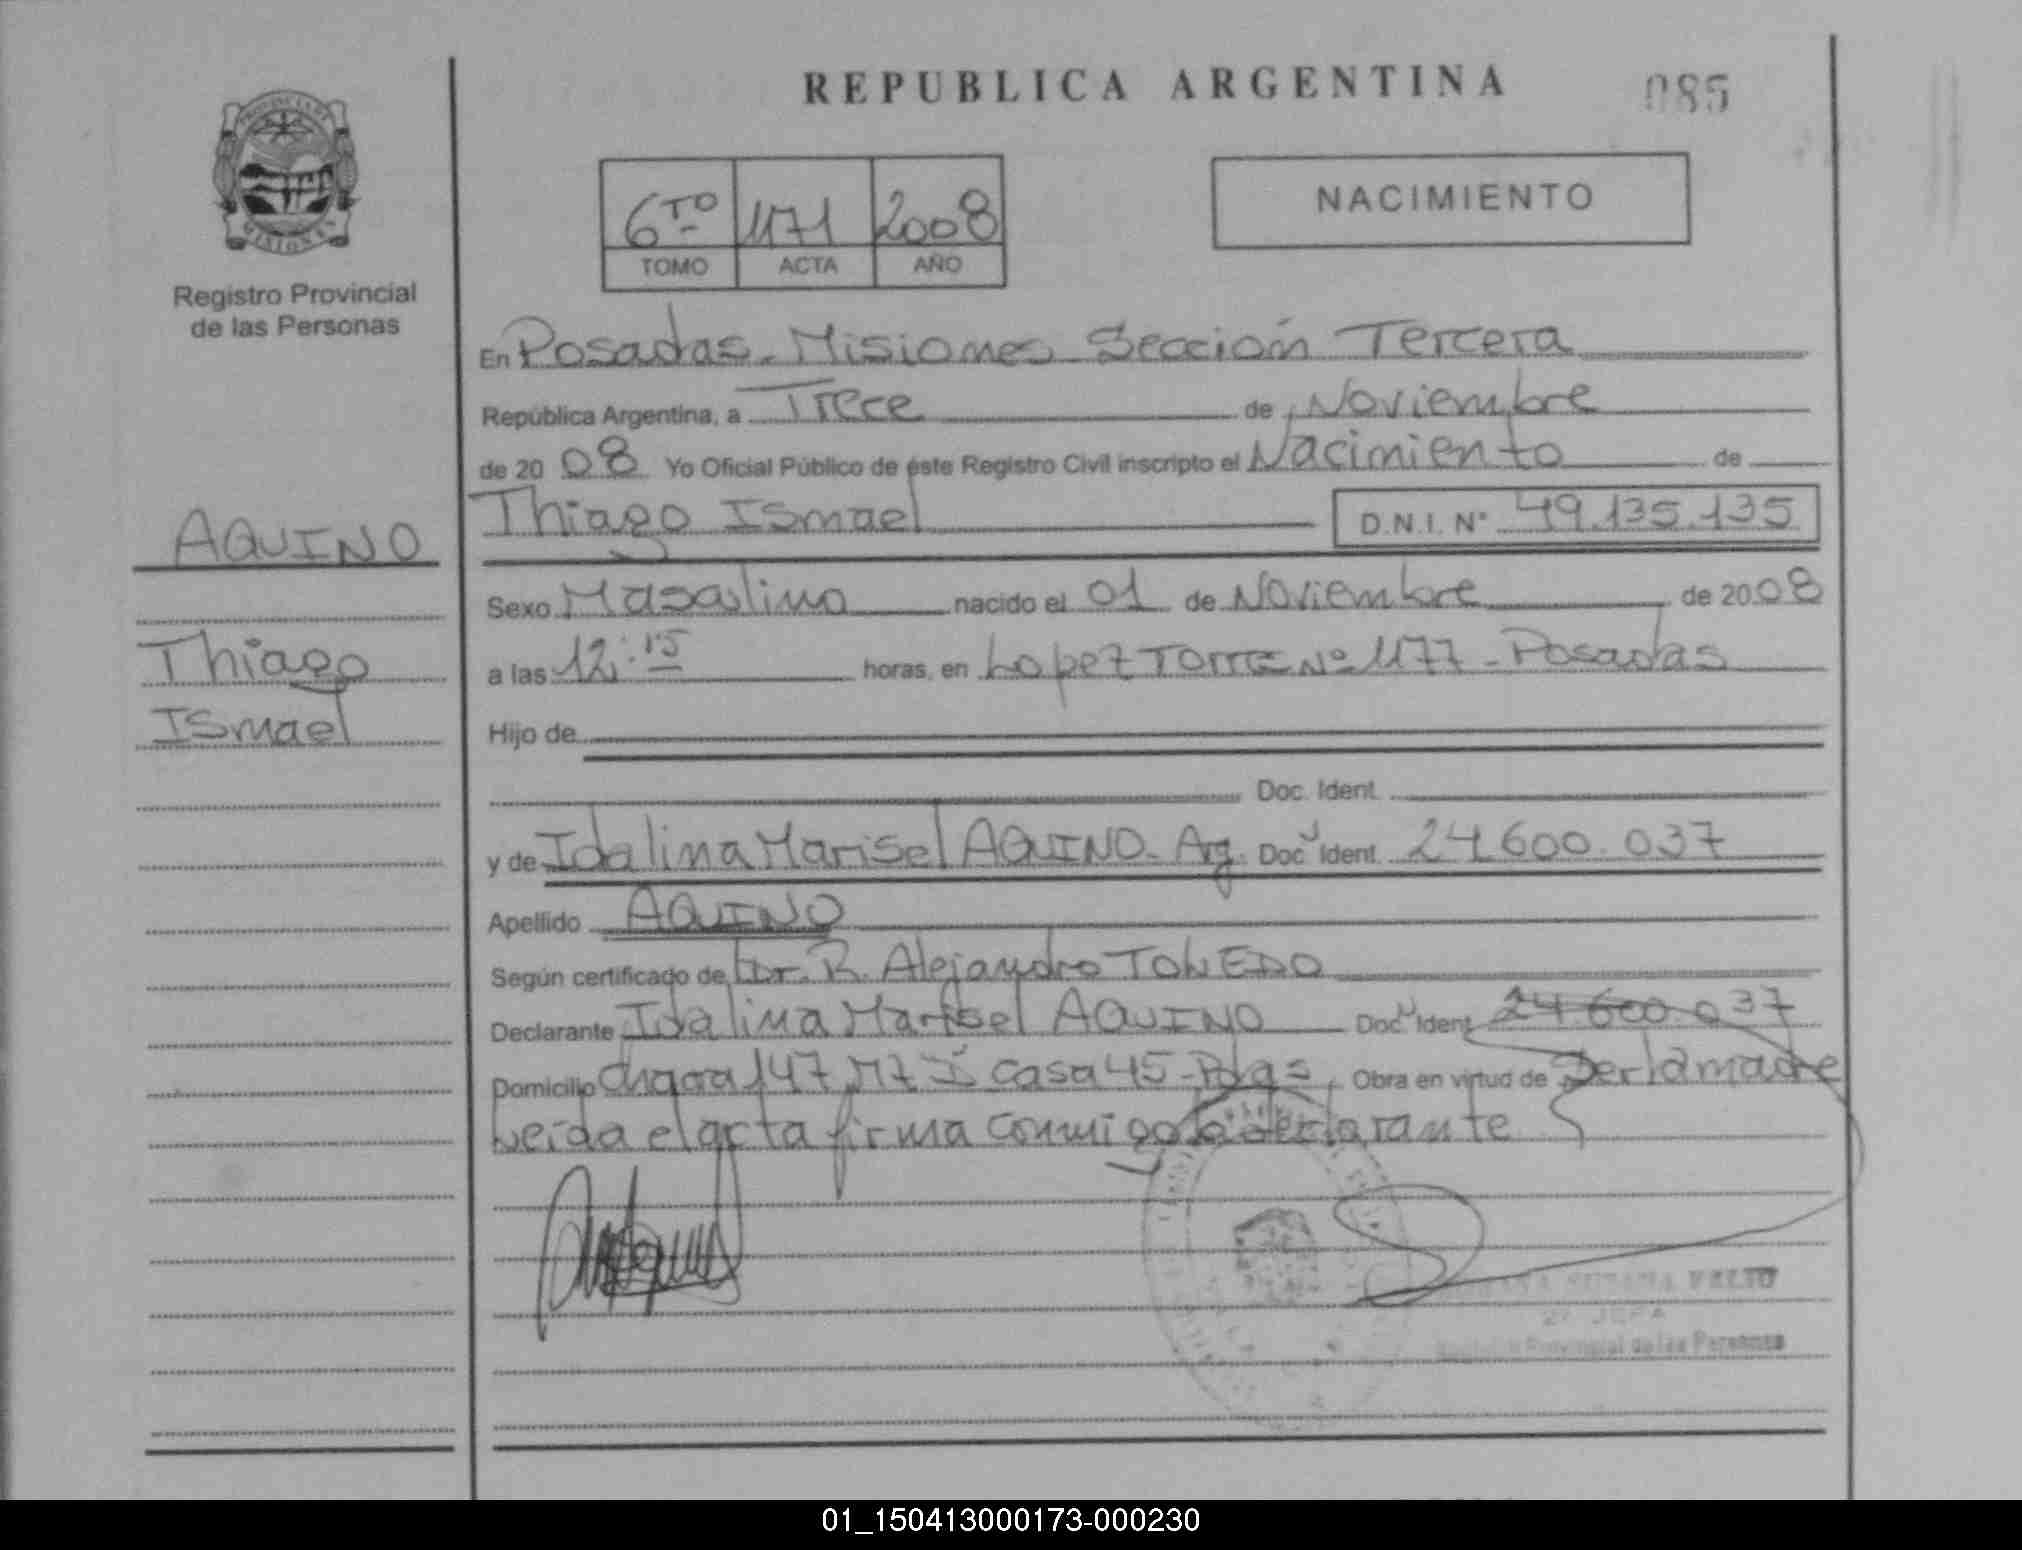 REPUBLICA ARGENTINA
085
PROVINCIA DE
MISIONES
Registro Provincial
de las Personas
6TO 1171 2008
TOMO ACTA AÑO
NACIMIENTO
En Posadas. Misiones Sección Tercera
República Argentina, a Trece de Noviembre
de 2008 Yo Oficial Público de éste Registro Civil inscripto el Nacimiento de
Thiago Ismael D.N.I. N° 49.135.135
AQUINO
Thiago
Ismael
Sexo Masculino nacido el 01 de Noviembre de 2008
a las 12:15 horas, en Lopez Torre Nº 1177 - Posadas
Hijo de
Doc. Ident.
y de Idalina Marisel AQUINO - Arg. Doc. Ident. 24.600.037
Apellido AQUINO
Según certificado de Dr. R. Alejandro TOLEDO
Declarante Idalina Marisel AQUINO Doc. Ident. 24.600.037
Domicilio chacra 147 Mz I casa 45 - Pdas, Obra en virtud de Ser la madre
Leída el acta firma conmigo la declarante
SUSANA
2º JEFA
Registro Provincial de las Personas
01_150413000173-000230